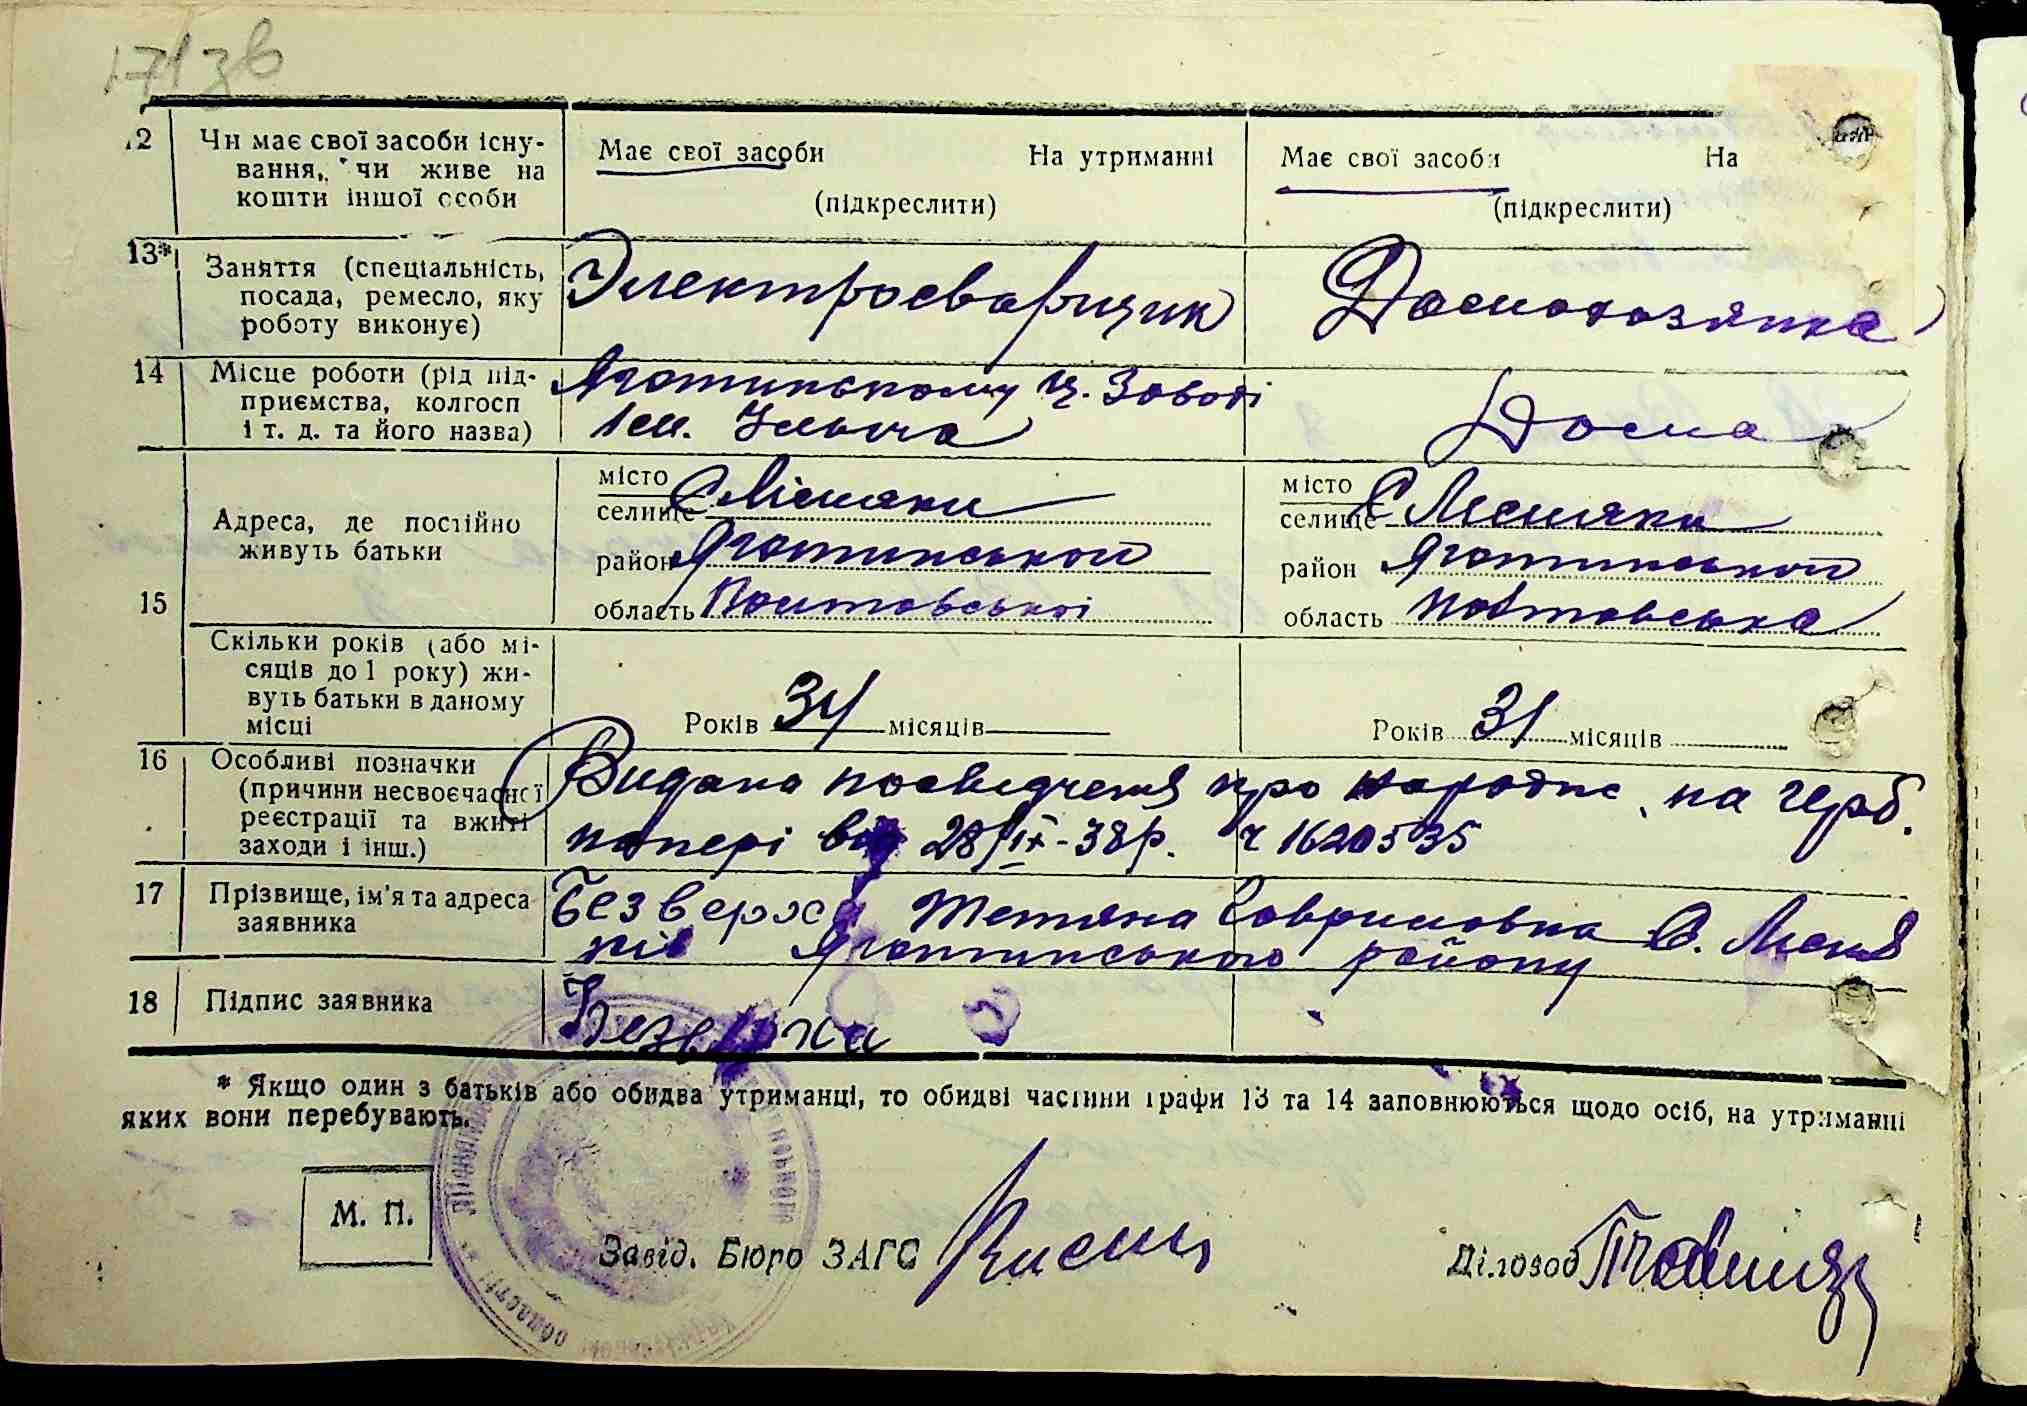 12 Чи має свої засоби існування, чи живе на кошти іншої особи
Має свої засоби На утриманні
(підкреслити)
Має свої засоби На
(підкреслити)
13* Заняття (спеціальність, посада, ремесло, яку роботу виконує)
Электросварщик
Домохозяйка
14 Місце роботи (рід підприємства, колгосп і т. д. та його назва)
Яготинському Ц. Заводі
ім. Ільіча
Дома
15 Адреса, де постійно живуть батьки
місто
селище С Лісняки
район Яготинського
область Полтавської
місто
селище С Лісняки
район Яготинського
область Полтавська
Скільки років (або місяців до 1 року) живуть батьки в даному місці
Років 34 місяців
Років 31 місяців
16 Особливі позначки (причини несвоєчасної реєстрації та вжиті заходи і інш.)
Видано посвідченя про народж. на герб.
папері від 28/IX-38р. ч 1620535
17 Прізвище, ім'я та адреса заявника
Безверха Тетяна Гавриловна С. Лісня
ків Яготинського району
18 Підпис заявника
Безверха
* Якщо один з батьків або обидва утриманці, то обидві частини графи 13 та 14 заповнюються щодо осіб, на утриманні
яких вони перебувають.
М. П.
Завід. Бюро ЗАГС
Діловод